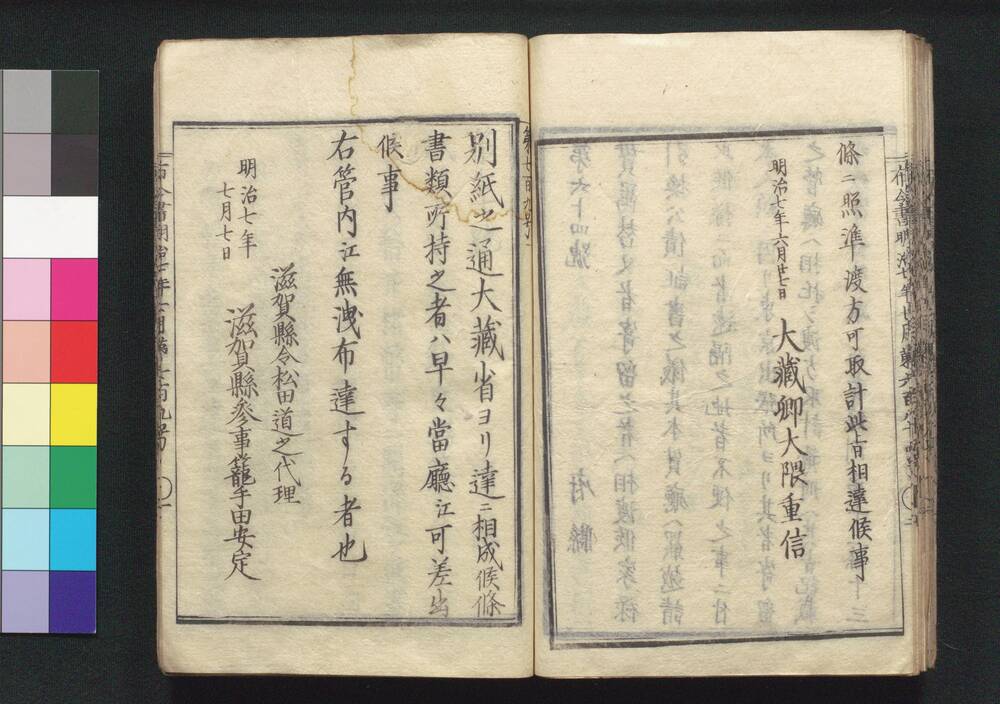 條ニ照準渡方可取計此旨相達候事
明治七年六月廿七日
大藏卿大隈重信
第七百九号
別紙之通大藏省ヨリ達ニ相成候條
書類所持之者ハ早々當廳江可差出
候事
右管内江無洩布達する者也
明治七年
七月七日
滋賀縣令松田道之代理
滋賀縣參事籠手田安定